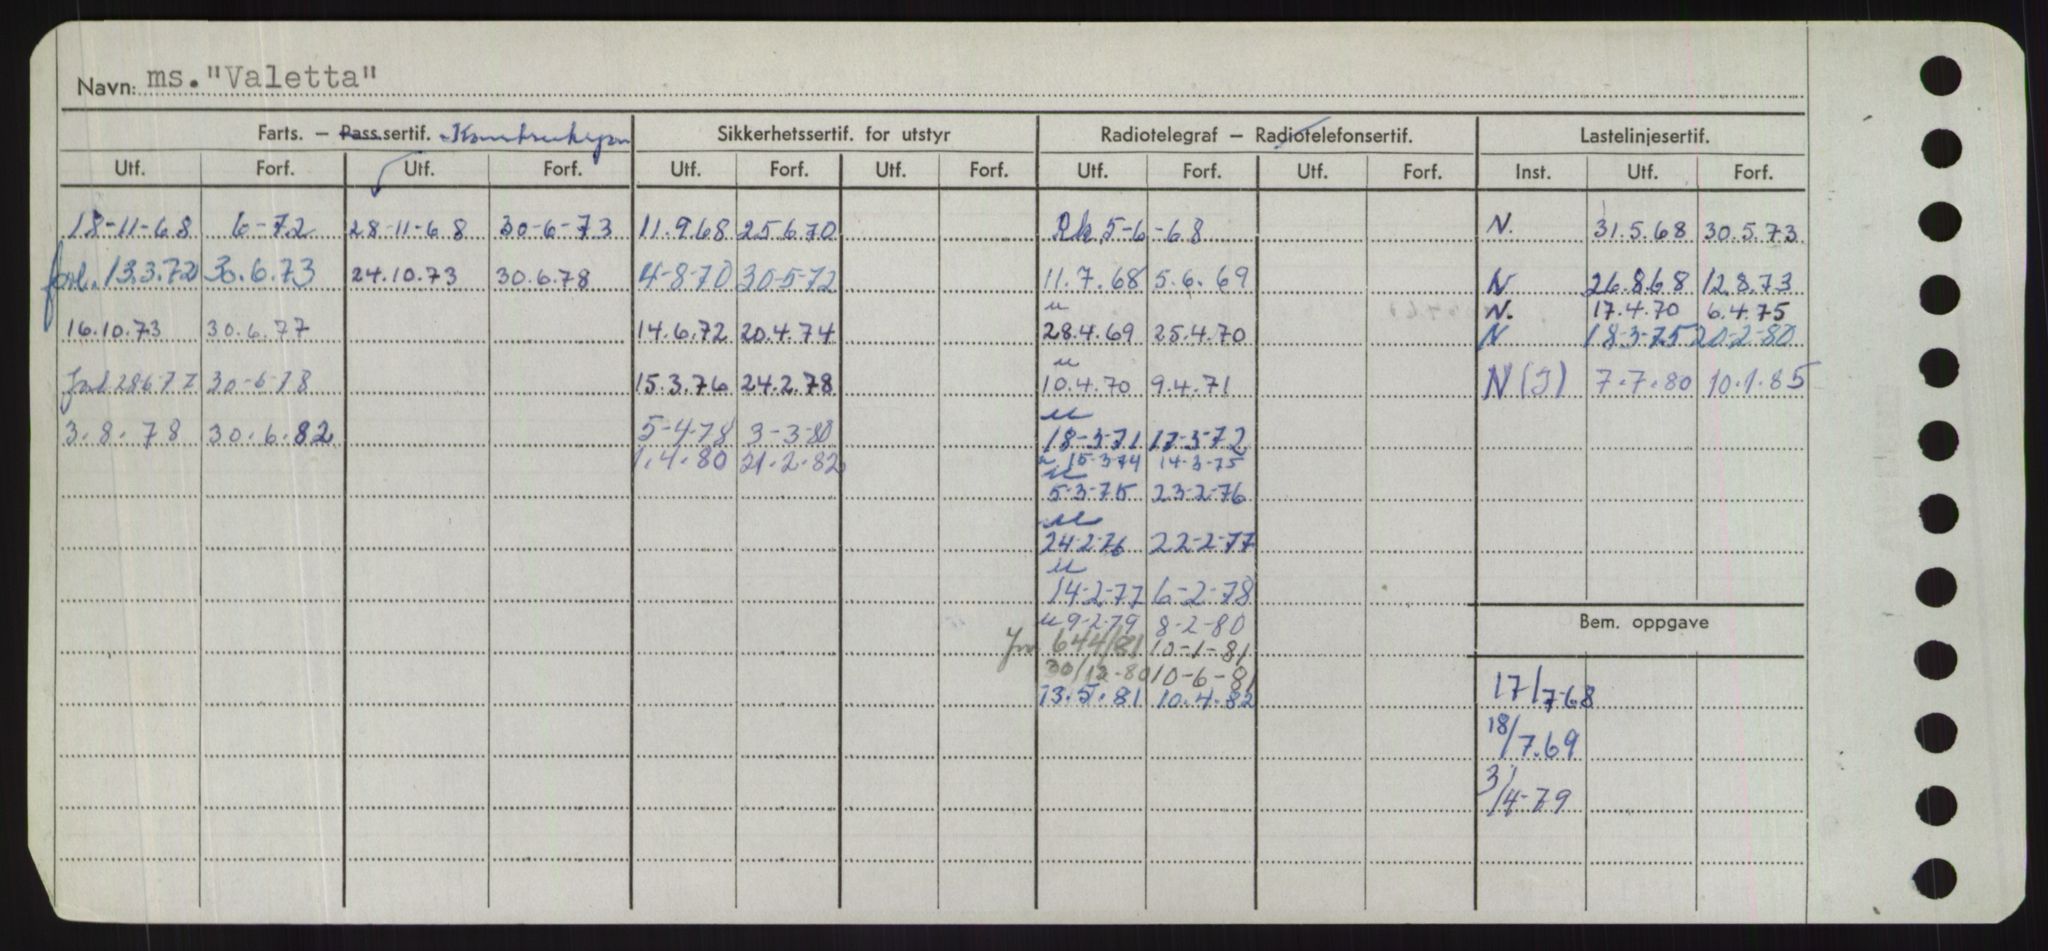 Navn: ms. "Valetta"
Farts. – Pass.sertif. - Konstruksjon Sikkerhetssertif. for utstyr Radiotelegraf – Radiotelefonsertif. Lastelinjesertif.
Utf. Forf. Utf. Forf. Utf. Forf. Utf. Forf. Utf. Forf. Utf. Forf. Inst. Utf. Forf.
18-11-68 6-72 28-11-68 30-6-73 11.9.68 25.6.70 Rk 5-6-68 N. 31.5.68 30.5.73
forl. 13.3.72 30.6.73 24.10.73 30.6.78 4-8-70 30-5-72 11.7.68 5.6.69 N 26.8.68 12.8.73
N. 17.4.70 6.4.75
16.10.73 30.6.77 14.6.72 20.4.74 28.4.69 25.4.70 N 18-3-75 20-2-80
forl 28.6.77 30-6-78 15.3.76 24.2.78 10.4.70 9.4.71 N (J) 7.7.80 10.1.85
3.8.78 30.6.82 5-4-78 3-3-80 18-3-71 17-3-72
1.4.80 21.2.82 15-3-74 14-3-75
5-3-75 23-2-76
24-2-76 22-2-77
14-2-77 6-2-78
Bem. oppgave
9-2-79 8-2-80
644/81 10-1-81
30/12-80 10-6-81
13.5.81 10.4.82
17/7-68
18/7.69
3/4-79